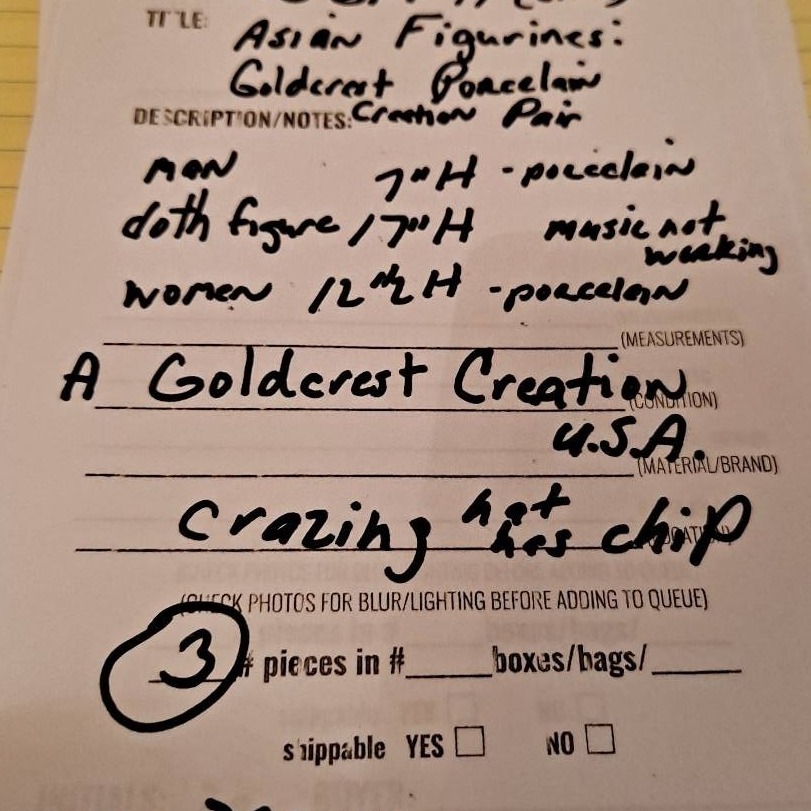 TITLE: Asian Figurines:
Goldcrest Porcelain
DESCRIPTION/NOTES: Creation Pair
man 7"H - porcelain
doth figure 17"H music not
working
women 12 1/2 H - porcelain
(MEASUREMENTS)
A Goldcrest Creation
(CONDITION)
U.S.A.
(MATERIAL/BRAND)
Crazing hat
has chip
(CHECK PHOTOS FOR BLUR/LIGHTING BEFORE ADDING TO QUEUE)
3 # pieces in #______boxes/bags/______
shippable YES □ NO □